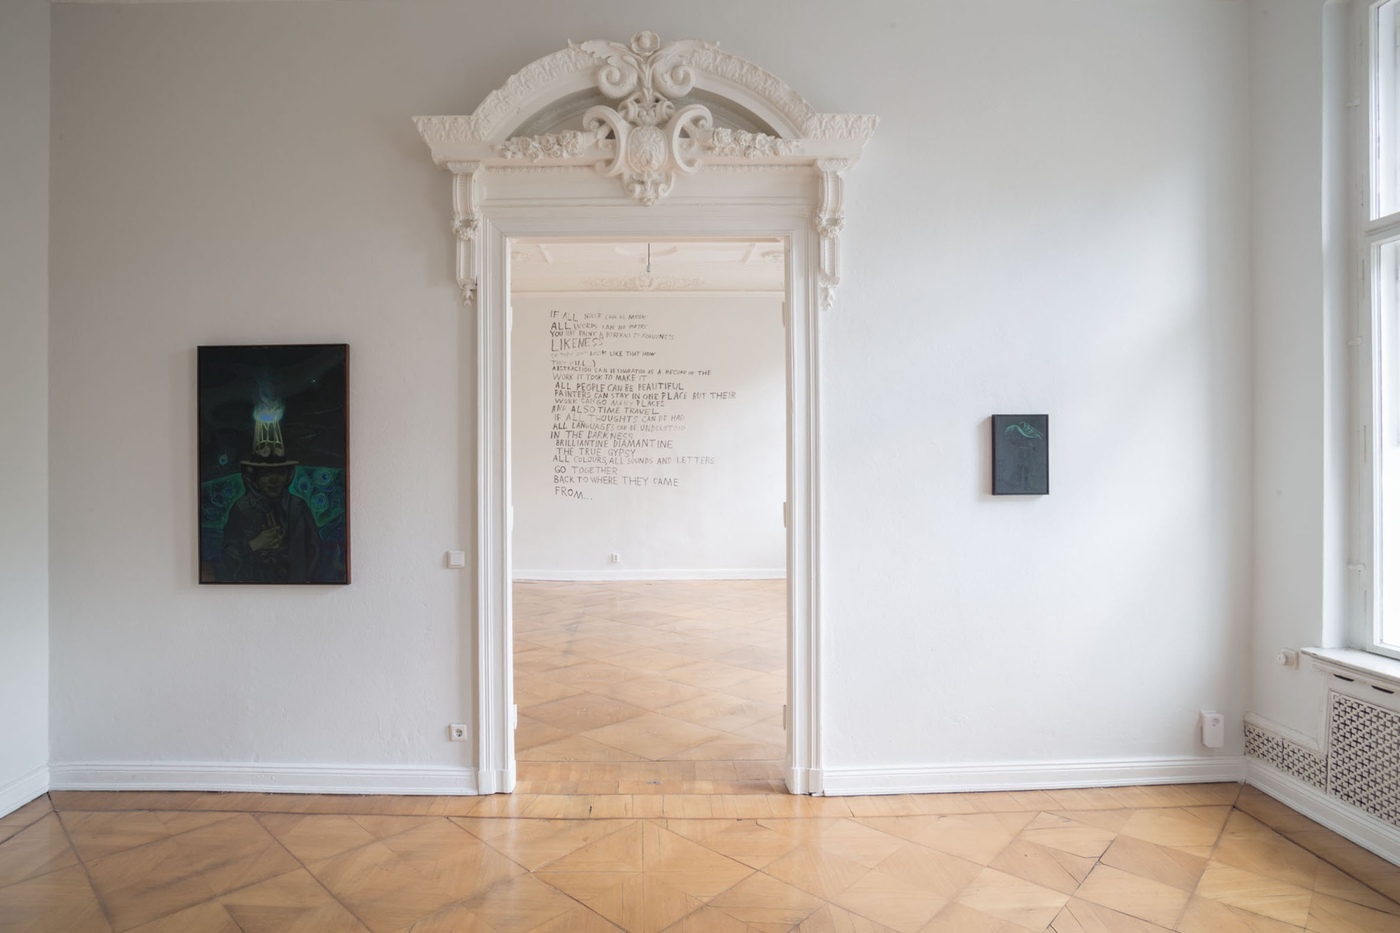 IF ALL
ALL WORDS CAN BE
YOU CAN PAINT A
LIKENESS
LIKE THAT NOW
THEY WILL )
ABSTRACTION CAN BE AS A RECORD OF THE
WORK IT TOOK TO MAKE IT
ALL PEOPLE CAN BE BEAUTIFUL
PAINTERS CAN STAY IN ONE PLACE BUT THEIR
WORK CAN GO MANY PLACES
AND ALSO TIME TRAVEL
IF ALL THOUGHTS CAN BE HAD
ALL LANGUAGES CAN BE UNDERSTOOD
IN THE DARKNESS
BRILLIANTINE DIAMANTINE
THE TRUE GYPSY
ALL COLOURS, ALL SOUNDS AND LETTERS
GO TOGETHER
BACK TO WHERE THEY CAME
FROM...